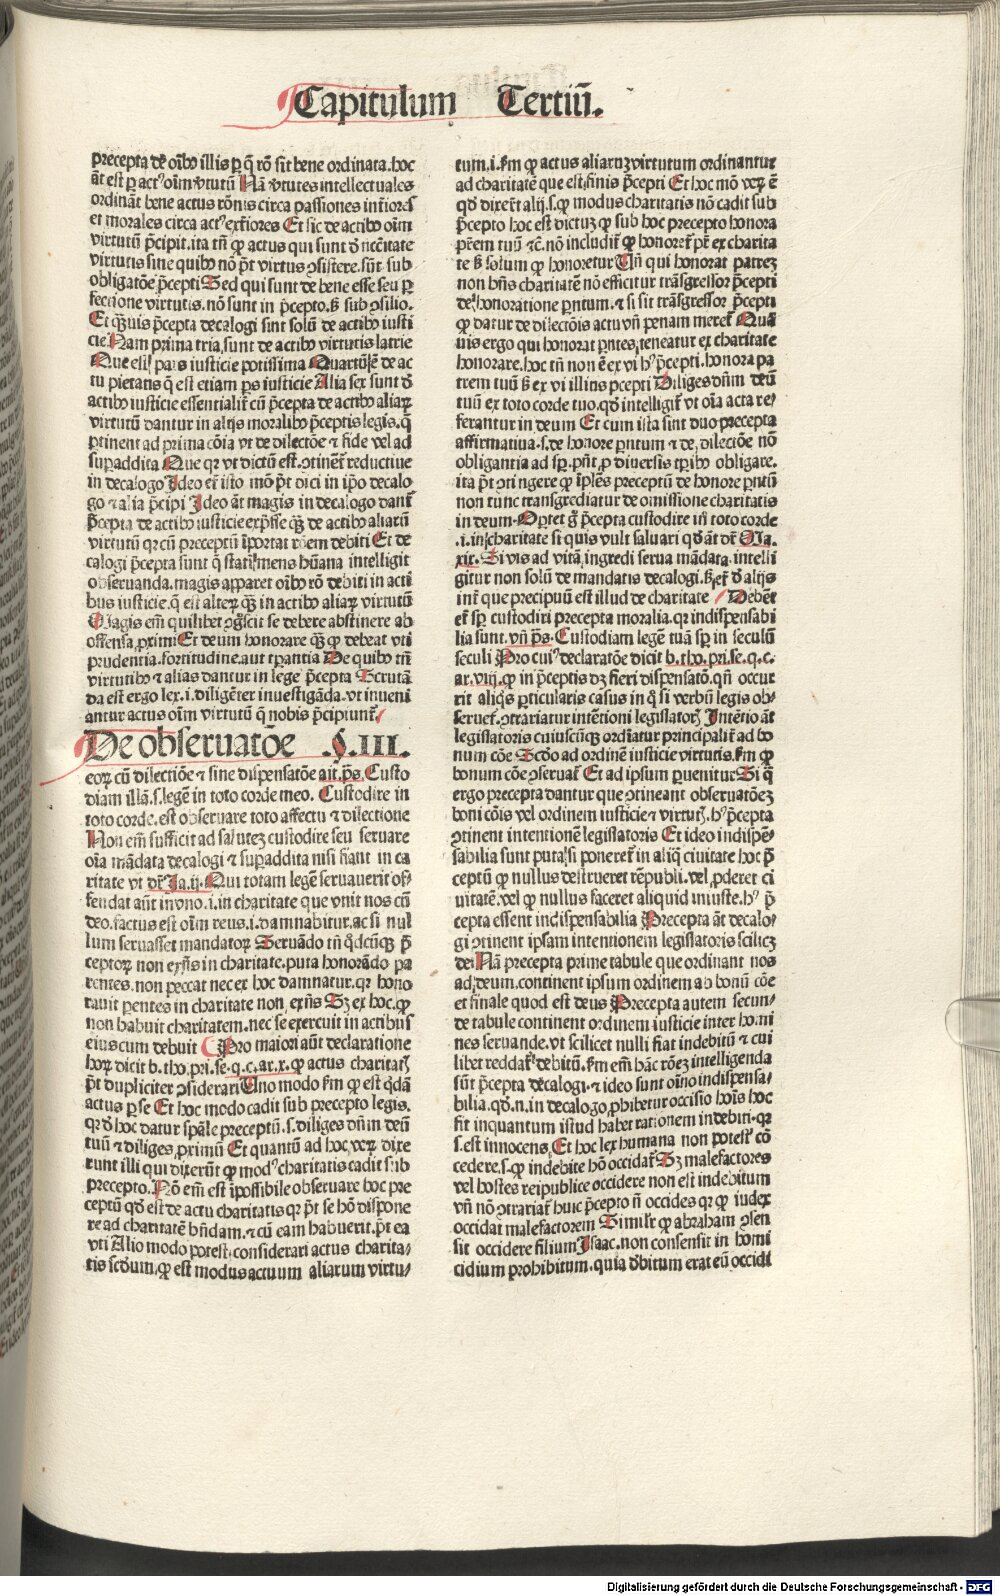 Capitulum Tertiū.
precepta de oībꝰ illis ꝑ q̄ rō sit bene ordinata. hoc
āt est ꝑ actꝰ oīm v̄tutū Nā v̄tutes intellectuales
ordināt bene actus rōnis circa passiones int̄iores
et morales circa actꝰ ext̄iores Et sic de actibꝰ oīm
virtutū p̄cipit. ita tn̄ ꝙ actus qui sunt d̄ nc̄citate
virtutis sine quibꝰ nō pt̄ virtus ꝯsistere. sūt sub
obligatōe p̄cepti Sed qui sunt de bene esse seu ꝑ
fectione virtutis. nō sunt in p̄cepto. sꝫ sub ꝯsilio.
Et qꝫuis p̄cepta decalogi sint solū de actibꝰ iusti
cie Nam prima tria sunt de actibꝰ virtutis latrie
Que est pars iusticie potissima Quartū de ac
tu pietatis q̄ est etiam ꝑs iusticie Alia sex sunt d̄
actibꝰ iusticie essentialit̄ cū p̄cepta de actibꝰ aliaꝝ
virtutū dantur in alijs moralibꝰ p̄ceptis legis. q̄
ꝑtinent ad prima cōia vt de dilectōe ⁊ fide vel ad
suꝑaddita Que qr vt dictū est. ꝯtinent̄ reductiue
in decalogo Ideo et isto mō pt̄ dici in ip̄o decalo
go ⁊ alia p̄cipi Ideo āt magis in decalogo dant̄
p̄cepta de actibꝰ iusticie exp̄sse qꝫ de actibꝰ aliarū
virtutū qr cū preceptū īportat rōem debiti Et de
calogi p̄cepta sunt q̄ statim mens hūana intelligit
obseruanda. magis apparet oībꝰ rō debiti in acti
bus iusticie. q̄ est alteꝝ qꝫ in actibꝰ aliaꝝ virtutū
Magis em̄ quilibet ꝯgscit se debere abstinere ab
offensa ꝓximi Et deum honorare qꝫ ꝙ debeat vti
prudentia. fortitudine. aut tꝑantia De quibꝰ tn̄
virtutibꝰ ⁊ alias dantur in lege p̄cepta Scrutā
da est ergo lex. i. diligēter inuestigāda. vt inueni
antur actus oīm virtutū q̄ nobis p̄cipiunt̄.
De obseruatōe .§.III.
eoꝝ cū dilectiōe ⁊ sine dispensatōe ait. p̄s. Custo
diam illā. s. legē in toto corde meo. Custodire in
toto corde. est obseruare toto affectu ⁊ dilectione
Non em̄ sufficit ad salutez custodire seu seruare
oīa mādata decalogi ⁊ suꝑaddita nisi fiant in ca
ritate vt dr̄ Ia. ij. Qui totam legē seruauerit of⸗
fendat aūt in vno. i. in charitate que vnit nos cū
deo. factus est oīm reus. i. damnabitur. ac si nul
lum seruasset mandatoꝝ Seruādo tn̄ qdcūqꝫ p̄
ceptoꝝ non exn̄s in charitate. puta honorādo pa
rentes. non peccat nec ex hoc damnatur. qr hono
rauit ꝑentes in charitate non exn̄s Sꝫ ex hoc. ꝙ
non habuit charitatem. nec se exercuit in actibus
eius cum debuit Pro maiori aūt declaratione
hoꝝ dicit b. tho. pri. se. q. c. ar. x. ꝙ actus charitatꝭ
pt̄ dupliciter ꝯsiderari Uno modo ẜm ꝙ est qdā
actus ꝑ se Et hoc modo cadit sub precepto legis.
qr d̄ hoc datur spāle preceptū. s. diliges dn̄m deū
tuū ⁊ diliges ꝓximū Et quantū ad hoc. veꝝ dixe
runt illi qui dixerūt ꝙ modꝰ charitatis cadit sub
precepto. Nō em̄ est īpossibile obseruare hoc pre
ceptū qd̄ est de actu charitatis qr pt̄ se hō dispone
re ad charitatē hn̄dam. ⁊ cū eam habuerit. pt̄ ea
vti Alio modo potest considerari actus charita⸗
tis scdum. ꝙ est modus actuum aliarum virtu⸗
tum. i. ẜm ꝙ actus aliarumvirtutum ordinantur
ad charitatē que est finis p̄cepti Et hoc mō veꝝ ē
qd̄ dixer̄t alij. s. ꝙ modus charitatis nō cadit sub
p̄cepto hoc est dictuz ꝙ sub hoc precepto honora
pr̄em tuū ⁊c̄. nō includit̄ ꝙ honoret̄ pr̄ ex charita
te sꝫ solum ꝙ honoretur Un̄ qui honorat patrez
non hn̄s charitatē nō efficitur trāsgressor p̄cepti
de honoratione ꝑntum. ⁊ si sit trāsgressor p̄cepti
ꝙ datur de dilectōis actu vn̄ penam meret̄ Quā
uis ergo qui honorat ꝑntes. teneatur ex charitate
honorare. hoc tn̄ non ē ex vi hꝰ p̄cepti. honora pa
trem tuū sꝫ ex vi illius pcepti Diliges dn̄m deū
tuū ex toto corde tuo. qd̄ intelligit̄ vt oīa acta re⸗
ferantur in deum Et cum ista sint duo precepta
affirmatiua. s. de honore ꝑntum ⁊ de dilectiōe nō
obligantia ad sꝑ. pn̄t ꝓ diuersis tꝑibꝰ obligare.
ita pt̄ ꝯtingere ꝙ īples preceptū de honore ꝑntū
non tunc transgrediatur de omissione charitatis
in deum. Oꝑtet g̊ p̄cepta custodire in toto corde
.i. in charitate si quis vult saluari qd̄ āt dr̄ Ma.
xix. Si vis ad vitā ingredi serua mādata. intelli
gitur non solū de mandatis decalogi. sꝫ et d̄ alijs
int̄ que precipuū est illud de charitate Debent̄
et sꝑ custodiri precepta moralia. qr indispensabi
lia sunt. vn̄ p̄s. Custodiam legē tuā sꝑ in seculū
seculi Pro cuiꝰ declaratōe dicit b. tho. pri. se. q. c.
ar. viij. ꝙ in p̄ceptis dꝫ fieri dispensatō. qn̄ occur
rit aliqs ꝑticularis casus in q̊ si verbū legis ob⸗
seruet̄. ꝯtrariatur intētioni legislatorꝭ Intētio āt
legislatoris cuiuscūqꝫ ordīatur principalit̄ ad bo
num cōe Scdo ad ordinē iusticie virtutis. ẜm ꝙ
bonum cōe ꝯseruat̄ Et ad ipsum ꝑuenitur Si q̄
ergo precepta dantur que ꝯtineant obseruatōez
boni cōis vel ordinem iusticie ⁊ virtutꝭ. hꝰ p̄cepta
ꝯtinent intentionē legislatoris Et ideo indispē⸗
sabilia sunt puta si poneret̄ in aliq̄ ciuitate hoc p̄
ceptū ꝙ nullus destrueret rēpubli. vel ꝓderet ci
uitatē. vel ꝙ nullus faceret aliquid iniuste. hꝰ p̄
cepta essent indispensabilia Precepta āt decalo⸗
gi ꝯtinent ipsam intentionem legislatoris scilicz
dei Nā precepta prime tabule que ordinant nos
ad deum. continent ipsum ordinem ab bonū cōe
et finale quod est deus Precepta autem secun⸗
de tabule continent ordinem iusticie inter homi
nes seruande. vt scilicet nulli fiat indebitū ⁊ cui
libet reddat̄ debitū. ẜm em̄ hāc rōez intelligenda
sūt p̄cepta decalogi. ⁊ ideo sunt oīno indispensa⸗
bilia. qd̄. n. in decalogo ꝓhibetur occisio hoīs hoc
fit inquantum istud habet rationem indebiti. qr
s. est innocens. Et hoc lex humana non potest cō
cedere. s. ꝙ indebite hō occidat̄ Sꝫ malefactores
vel hostes reipublice occidere non est indebitum
vn̄ nō ꝯtrariat̄ huic p̄cepto nō occides qr ꝙ iudex
occidat malefactorem Similr̄ ꝙ abraham ꝯsen
sit occidere filium Isaac. non consensit in homi
cidium prohibitum. quia d̄bitum erat eū occidi
Digitalisierung gefördert durch die Deutsche Forschungsgemeinschaft - DFG